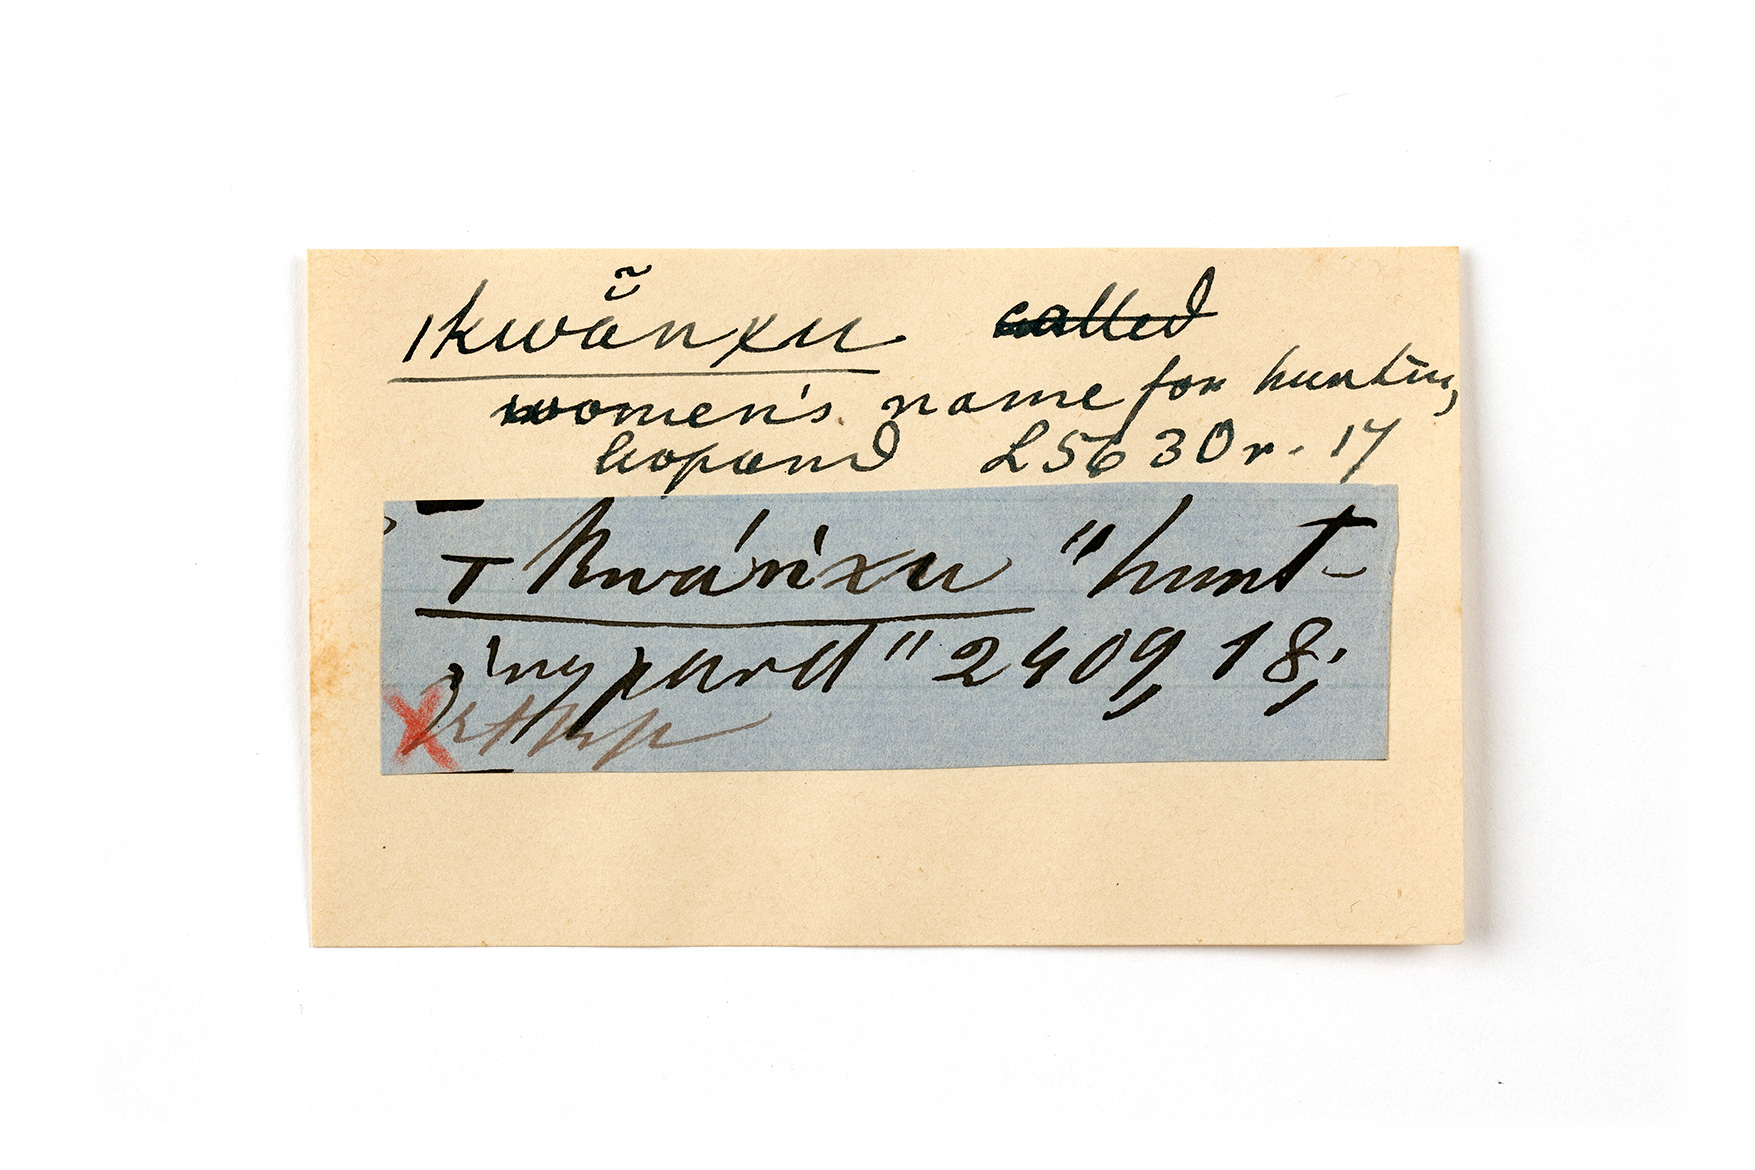 ıkwā̆̃nxu ~~called~~
women's name for hunting
leopard L5630r. 17
т kwáńxu "hunt-
ingpard" 2409, 18;